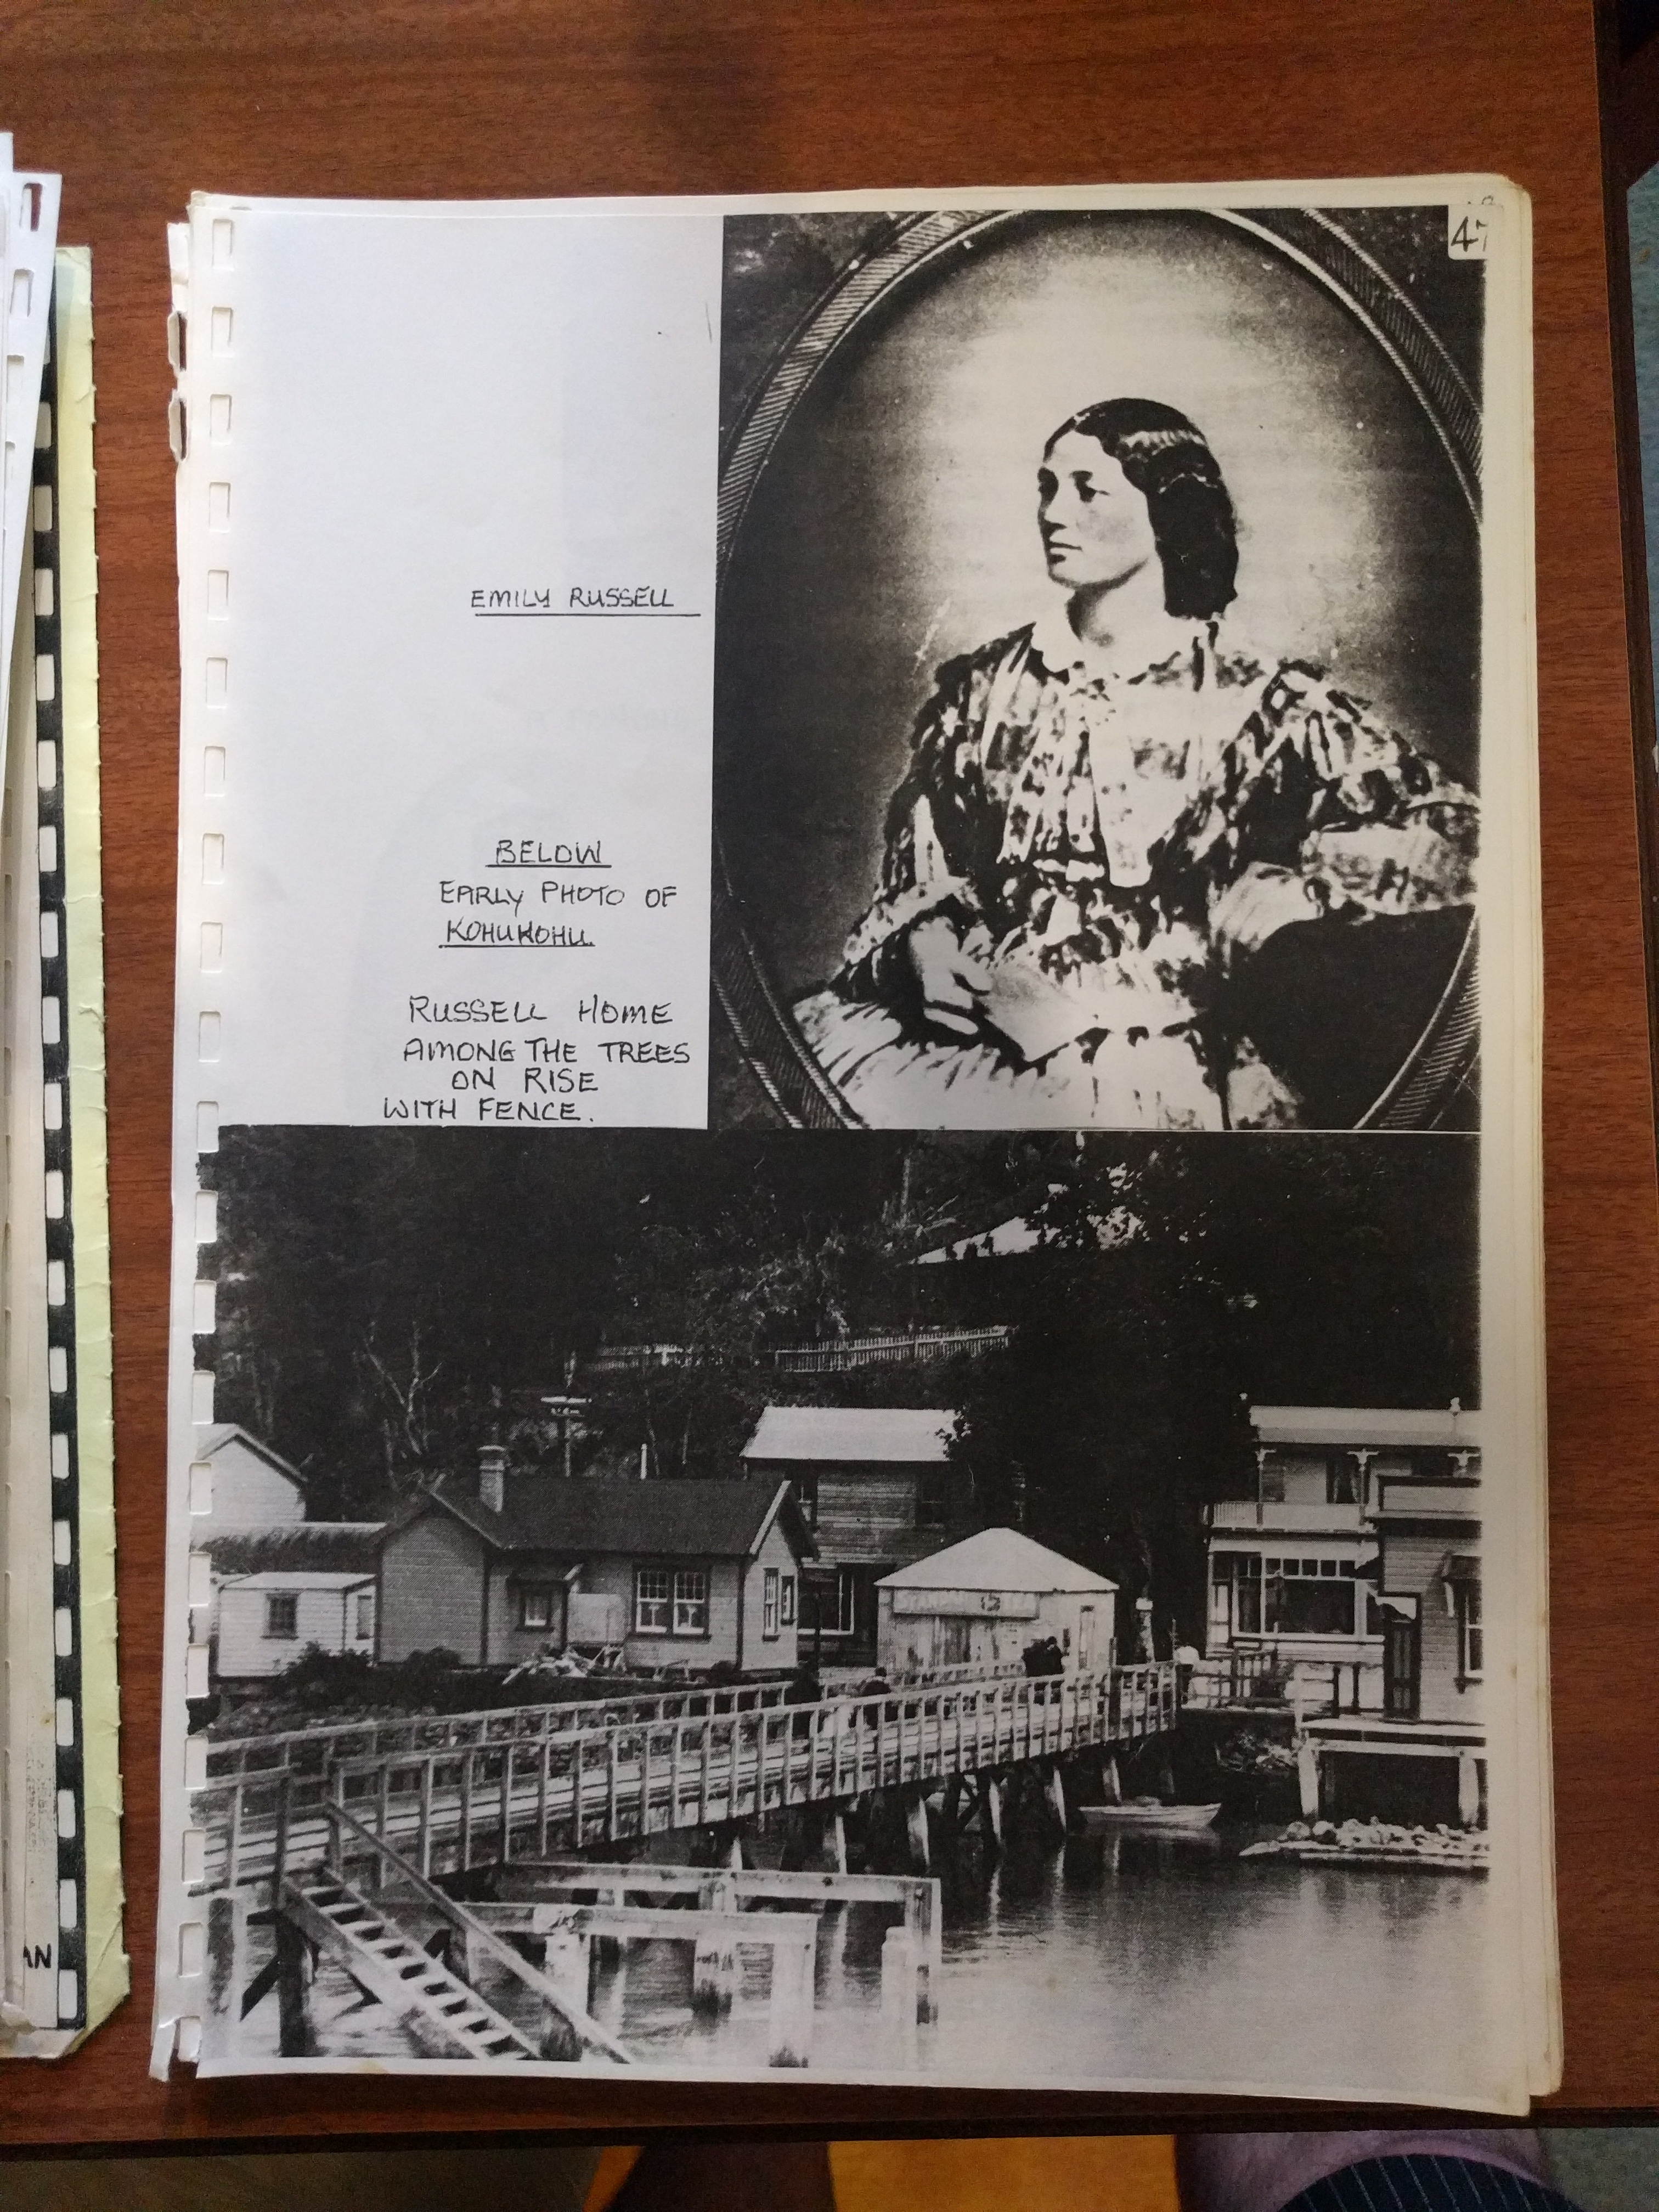 47
EMILY RUSSELL
BELOW
EARLY PHOTO OF
KOHUKOHU.
RUSSELL HOME
AMONG THE TREES
ON RISE
WITH FENCE.
AN